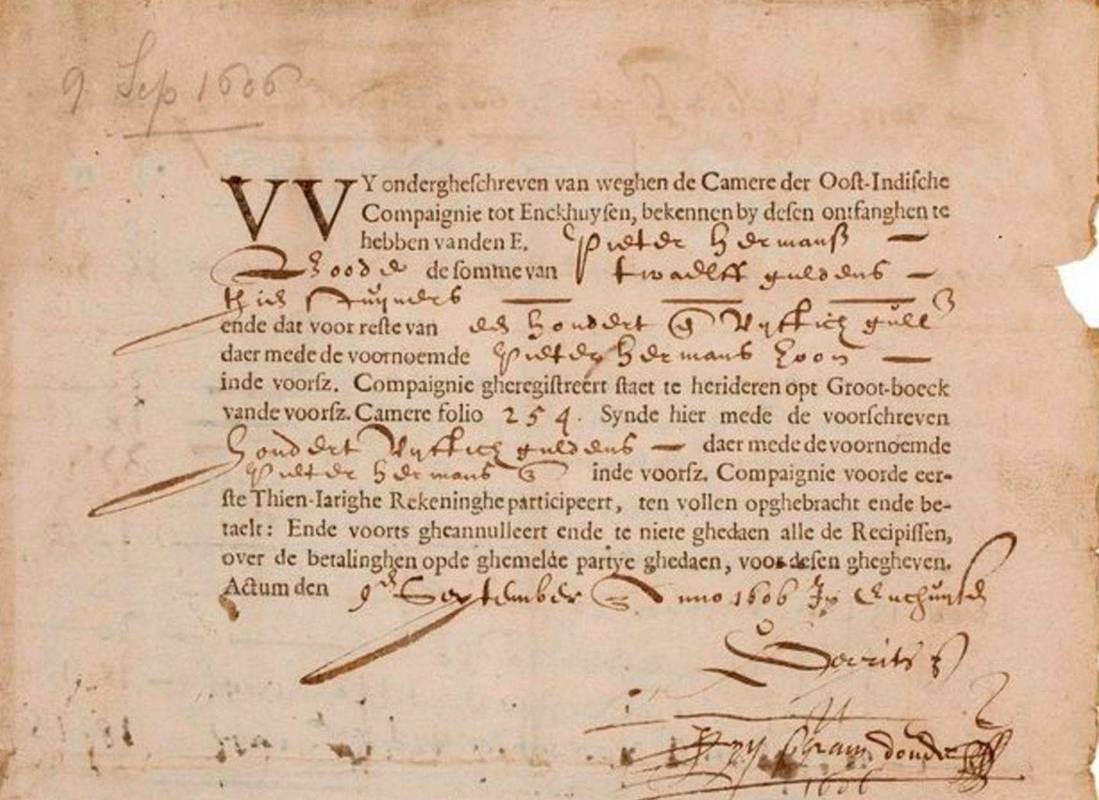 9 Sep 1606
VVY ondergheschreven van weghen de Camere der Oost-Indische
Compaignie tot Enckhuysen, bekennen by desen ontfanghen te
hebben vanden E. Pieter Hermansz
de somme van twaelff guldens
thien stuyvers
ende dat voor reste van een hondert vyftich gull
daer mede de voornoemde Pieter Hermans zoon
inde voorsz. Compaignie gheregistreert staet te herideren opt Groot-boeck
vande voorsz. Camere folio 254. Synde hier mede de voorschreven
hondert vyftich guldens daer mede de voornoemde
Pieter Hermans inde voorsz. Compaignie voorde eer-
ste Thien-Iarighe Rekeninghe participeert, ten vollen opghebracht ende be-
taelt: Ende voorts gheannulleert ende te niete ghedaen alle de Recipissen,
over de betalinghen opde ghemelde partye ghedaen, voor desen ghegheven.
Actum den 9en September Anno 1606 In Enchuysen
1606